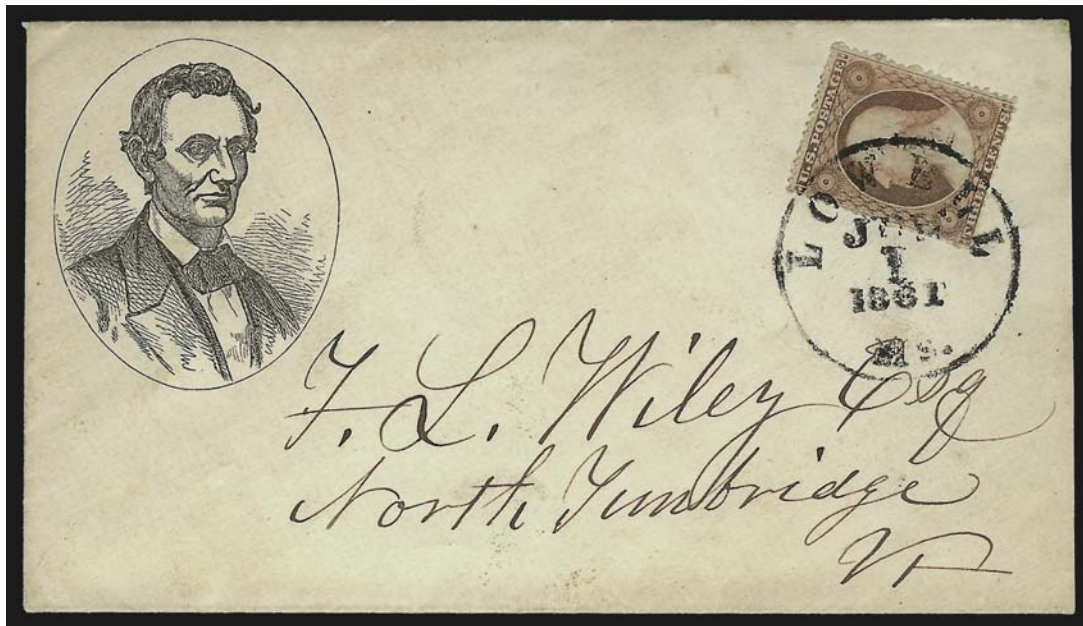 U.S. POSTAGE
THREE CENTS
LOWELL
1
1861
Ms.
F. L. Wiley Esq
North Tunbridge
Vt